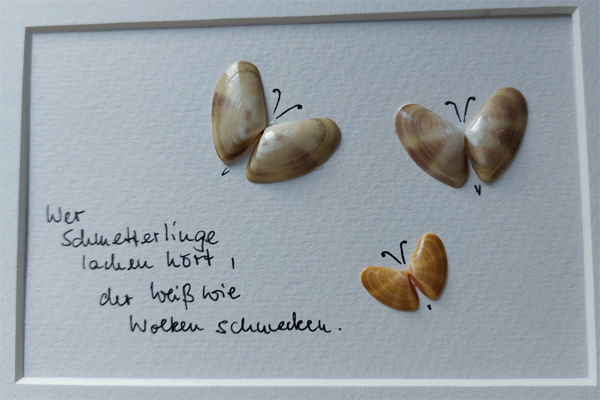 Wer
Schmetterlinge
lachen hört,
der weiß wie
Wolken schmecken.